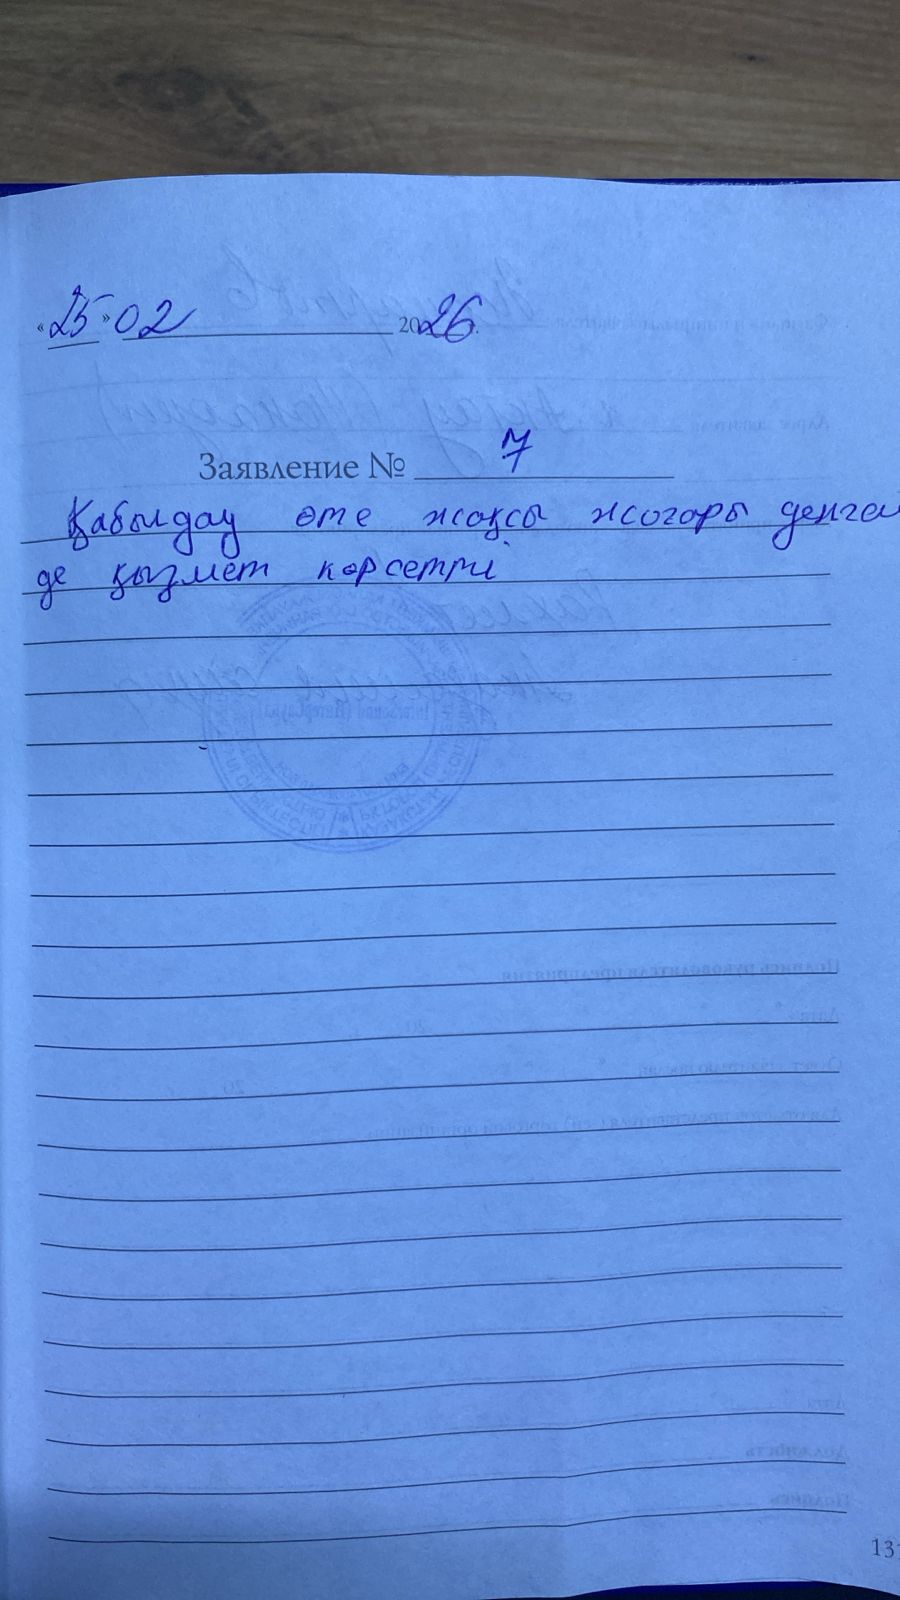 «25» 02 2026.
Заявление № 7
Қабылдау өте жақсы жоғары денге
де қызмет көрсетті
13